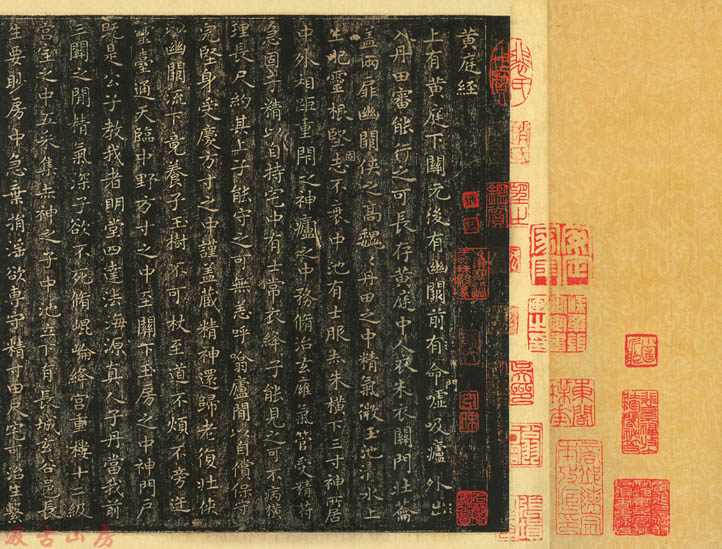 黄庭經
上有黄庭下關元後有幽闕前有命門噓吸廬外出
入丹田審能行之可長存黄庭中人衣朱衣關門壯籥
盖兩扉幽闕俠之高魏丹田之中精氣微玉池清水上
生肥靈根堅志不衰中池有士服赤朱橫下三寸神所居
中外相距重閉之神廬之中務脩治玄雍氣管受精符
急固子精以自持宅中有士常衣絳子能見之可不病橫
理長尺約其上子能守之可無恙呼噏廬間以自償保守
完堅身受慶方寸之中謹盖藏精神還歸老復壯俠
以幽闕流下竟養子玉樹不可杖至道不煩不旁迕
靈臺通天臨中野方寸之中至關下玉房之中神門戶
既是公子教我者明堂四達法海源真人子丹當我前
三關之間精氣深子欲不死脩崐崘絳宮重樓十二級
宮室之中五采集赤神之子中池立下有長城玄谷邑長
生要眇房中急棄捐淫欲專子精寸田尺宅可治生繫
汲古山房